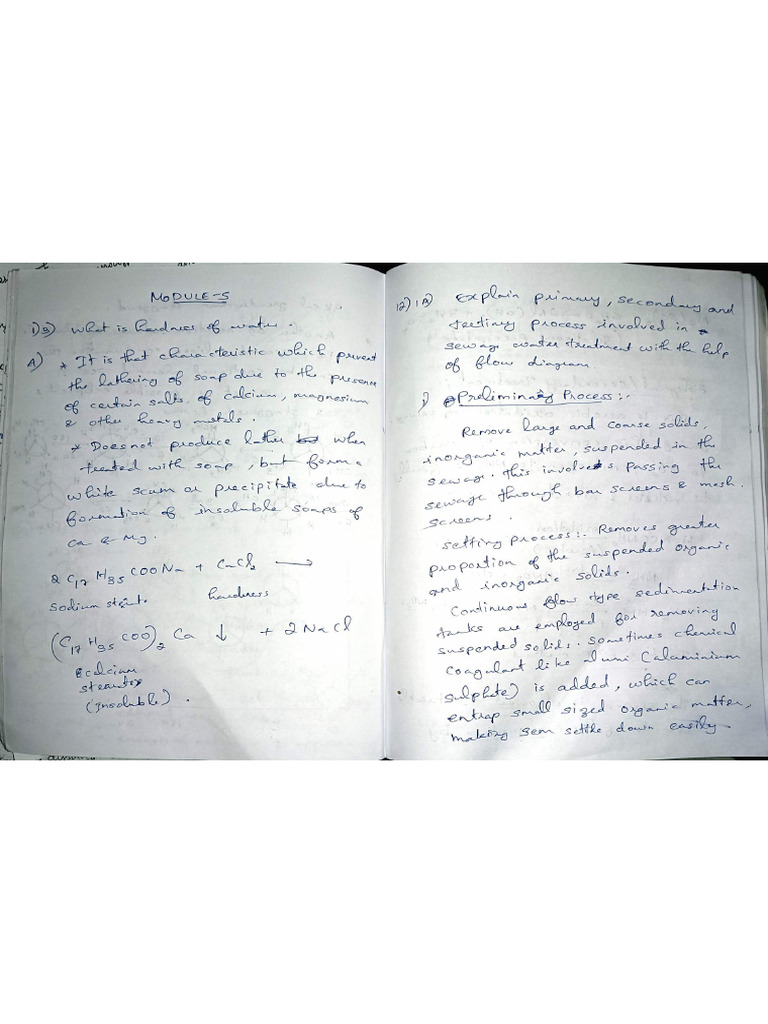 MODULE-5
1) 3) What is hardness of water.
A) * It is that characteristic which prevent
the lathering of soap due to the presence
of certain salts of calcium, magnesium
& other heavy metals.
* Does not produce lather when
treated with soap, but forms
white scum or precipitate due to
formation of insoluble soaps of
Ca & Mg.
2 C17 H35 COO Na + CaCl2 →
sodium hardness
(C17 H35 COO)2 Ca ↓ + 2 NaCl
calcium
(Insoluble).
12) Explain primary, secondary and
process involved in
sewage water treatment with the help
of flow diagram
1) Preliminary Process:-
Remove large and coarse solids,
inorganic matter, suspended in the
sewage. this involves passing the
sewage through bar screens & mesh.
screens.
setting process:- Removes greater
proportion of the suspended organic
and inorganic solids.
Continuous flow type sedimentation
tanks are employed for removing
suspended solids. sometimes chemical
coagulant like alum (aluminium
sulphate) is added, which can
entrap small sized organic matter,
making settle down easily